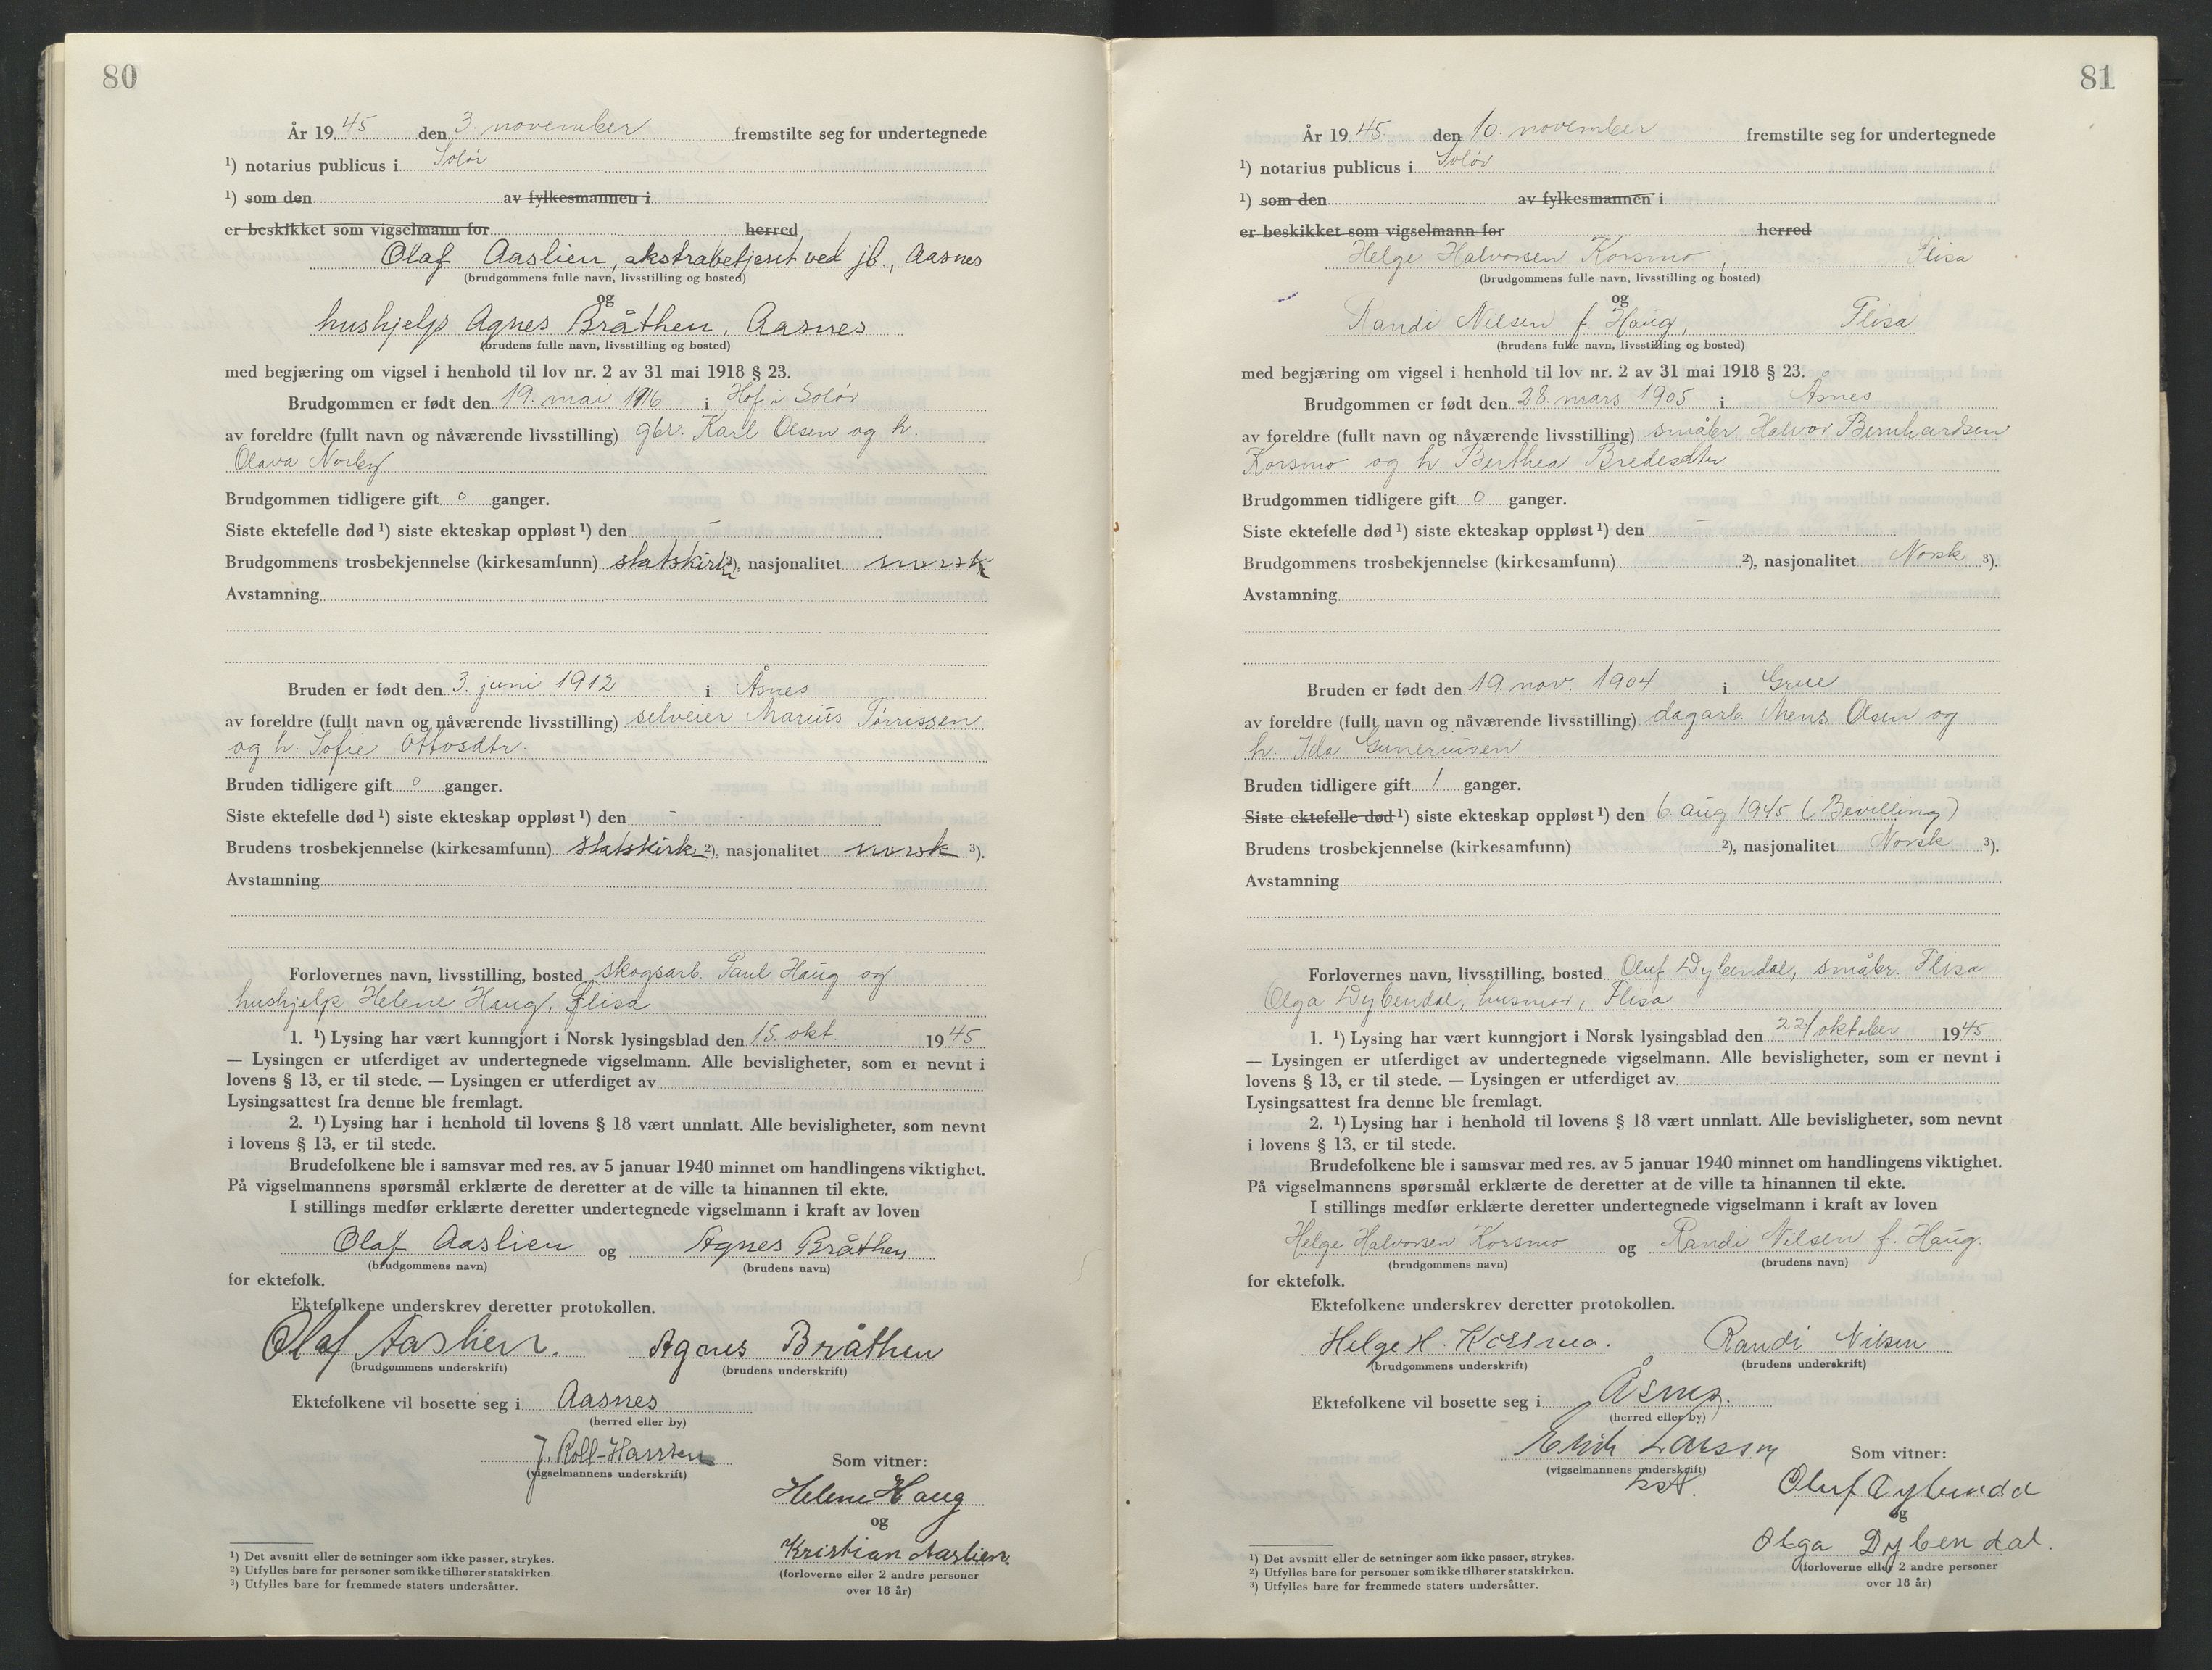 80
År 19 45 den 3. november fremstilte seg for undertegnede
¹) notarius publicus i Solør
¹) som den av fylkesmannen i
er beskikket som vigselmann for herred
Olaf Aaslien, ekstrabetjent ved jb., Aasnes
(brudgommens fulle navn, livsstilling og bosted)
og
hushjelp Agnes Bråthen, Aasnes
(brudens fulle navn, livsstilling og bosted)
med begjæring om vigsel i henhold til lov nr. 2 av 31 mai 1918 § 23.
Brudgommen er født den 19. mai 1916 i Hof i Solør
av foreldre (fullt navn og nåværende livsstilling) gbr. Karl Olsen og h.
Olava Norby
Brudgommen tidligere gift 0 ganger.
Siste ektefelle død ¹) siste ekteskap oppløst ¹) den –
Brudgommens trosbekjennelse (kirkesamfunn) statskirk ²), nasjonalitet norsk
Avstamning
Bruden er født den 3. juni 1912 i Åsnes
av foreldre (fullt navn og nåværende livsstilling) selveier Marius Tørrissen
og h. Sofie Ottosdtr.
Bruden tidligere gift 0 ganger.
Siste ektefelle død ¹) siste ekteskap oppløst ¹) den –
Brudens trosbekjennelse (kirkesamfunn) statskirk ²), nasjonalitet norsk ³).
Avstamning
Forlovernes navn, livsstilling, bosted skogsarb. Paul Haug og
hushjelp Helene Haug, Flisa
1. ¹) Lysing har vært kunngjort i Norsk lysingsblad den 15. okt. 19 45
— Lysingen er utferdiget av undertegnede vigselmann. Alle bevisligheter, som er nevnt i
lovens § 13, er til stede. — Lysingen er utferdiget av
Lysingsattest fra denne ble fremlagt.
2. ¹) Lysing har i henhold til lovens § 18 vært unnlatt. Alle bevisligheter, som nevnt
i lovens § 13, er til stede.
Brudefolkene ble i samsvar med res. av 5 januar 1940 minnet om handlingens viktighet.
På vigselmannens spørsmål erklærte de deretter at de ville ta hinannen til ekte.
I stillings medfør erklærte deretter undertegnede vigselmann i kraft av loven
Olaf Aaslien og Agnes Bråthen
(brudgommens navn) (brudens navn)
for ektefolk.
Ektefolkene underskrev deretter protokollen.
Olaf Aaslien. Agnes Bråthen
(brudgommens underskrift) (brudens underskrift)
Ektefolkene vil bosette seg i Aasnes
(herred eller by)
J. Roll-Hansen
(vigselmannens underskrift)
Som vitner:
Helene Haug
og
Kristian Aaslien.
(forloverne eller 2 andre personer
over 18 år)
¹) Det avsnitt eller de setninger som ikke passer, strykes.
²) Utfylles bare for personer som ikke tilhører statskirken.
³) Utfylles bare for fremmede staters undersåtter.
81
År 19 45 den 10. november fremstilte seg for undertegnede
¹) notarius publicus i Solør
¹) som den av fylkesmannen i
er beskikket som vigselmann for herred
Helge Halvorsen Korsmo, Flisa
(brudgommens fulle navn, livsstilling og bosted)
og
Randi Nilsen f. Haug, Flisa
(brudens fulle navn, livsstilling og bosted)
med begjæring om vigsel i henhold til lov nr. 2 av 31 mai 1918 § 23.
Brudgommen er født den 28. mars 1905 i Åsnes
av foreldre (fullt navn og nåværende livsstilling) småbr. Halvor Bernhardsen
Korsmo og h. Berthea Bredesdtr.
Brudgommen tidligere gift 0 ganger.
Siste ektefelle død ¹) siste ekteskap oppløst ¹) den –
Brudgommens trosbekjennelse (kirkesamfunn) ²), nasjonalitet Norsk ³).
Avstamning
Bruden er født den 19. nov. 1904 i Grue
av foreldre (fullt navn og nåværende livsstilling) dagarb. Mens Olsen og
h. Ida Guneriusen
Bruden tidligere gift 1 ganger.
Siste ektefelle død ¹) siste ekteskap oppløst ¹) den 6. aug 1945 (Bevilling)
Brudens trosbekjennelse (kirkesamfunn) ²), nasjonalitet Norsk ³).
Avstamning
Forlovernes navn, livsstilling, bosted Oluf Dybendal, småbr. Flisa
Olga Dybendal, husmor, Flisa
1. ¹) Lysing har vært kunngjort i Norsk lysingsblad den 22/ oktober 19 45.
— Lysingen er utferdiget av undertegnede vigselmann. Alle bevisligheter, som er nevnt i
lovens § 13, er til stede. — Lysingen er utferdiget av
Lysingsattest fra denne ble fremlagt.
2. ¹) Lysing har i henhold til lovens § 18 vært unnlatt. Alle bevisligheter, som nevnt
i lovens § 13, er til stede.
Brudefolkene ble i samsvar med res. av 5 januar 1940 minnet om handlingens viktighet.
På vigselmannens spørsmål erklærte de deretter at de ville ta hinannen til ekte.
I stillings medfør erklærte deretter undertegnede vigselmann i kraft av loven
Helge Halvorsen Korsmo og Randi Nilsen f. Haug.
(brudgommens navn) (brudens navn)
for ektefolk.
Ektefolkene underskrev deretter protokollen.
Helge H. Korsmo. Randi Nilsen
(brudgommens underskrift) (brudens underskrift)
Ektefolkene vil bosette seg i Åsnes.
(herred eller by)
Erik Larssen
(vigselmannens underskrift)
Som vitner:
Oluf Dybendal
og
Olga Dybendal.
(forloverne eller 2 andre personer
over 18 år)
¹) Det avsnitt eller de setninger som ikke passer, strykes.
²) Utfylles bare for personer som ikke tilhører statskirken.
³) Utfylles bare for fremmede staters undersåtter.